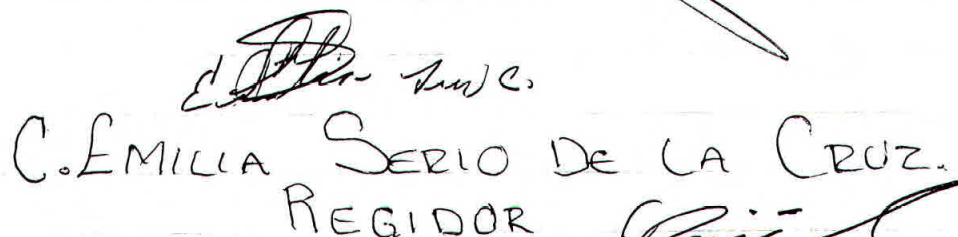 C. EMILIA SERIO DE LA CRUZ.
REGIDOR